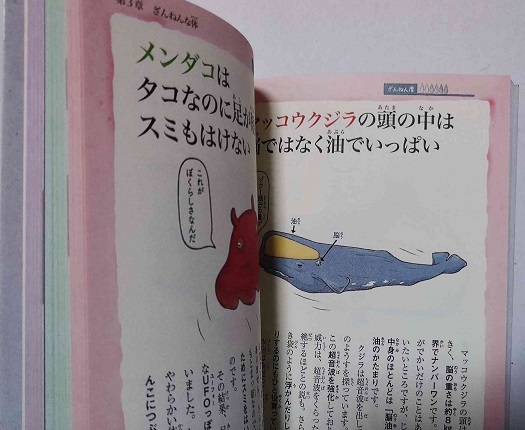 第3章 ざんねんな体
メンダコは
タコなのに足が
スミもはけない
これが
ぼくらしさなんだ
ために、スミをは
のです。
その結果、ロ
なUFOっぽ
いました。
やわらかい
んこにつぶ
ざんねん度
マッコウクジラの頭の中は
ではなく油でいっぱい
油
脳
マッコウクジラの頭
さく、脳の重さは約8kg
界でナンバーワンです。
がでかいだけのことはあ
いたいところですが、じ
中身のほとんどは「脳油
油のかたまりです。
クジラは超音波を出し
のようすを探っています。
この超音波を強化してお
威力は、超音波をくらった
絶するほどとの説も。さ
き袋のように浮かんだり
りするのにもひと役買って